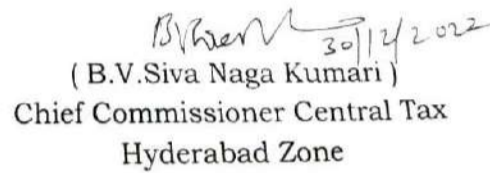 30/12/2022
( B.V.Siva Naga Kumari )
Chief Commissioner Central Tax
Hyderabad Zone